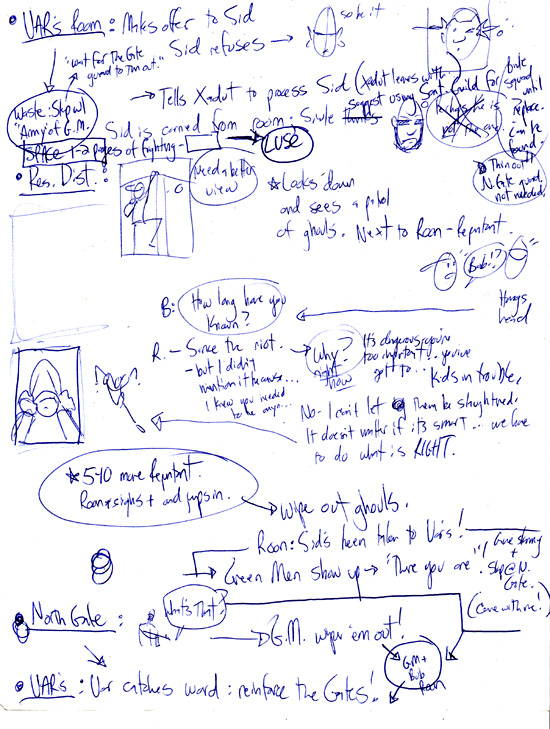 • VAR's Room: Makes offer to Sid
Sid refuses →
so be it
"wait for The Gate
guard to Thin out."
→ Tells Xadut to process Sid (Xadut leaves with
suggest using Gate-Guild for
squad until
replace.
can be
found.
Perhaps he is
not the one.
Thin out
N. Gate guard
not needed.
Waste: Skp w/
"Army of G.M.
Sid is carried from room:
CUSE
SPACE 1-2 pages of fighting-
• Res. Dist.:
Need a better
view
* Looks down
and sees a patrol
of ghouls. Next to Roan - Repentant.
Bub!?
B: How long have you
known?
Hangs
head
R. - Since the riot.
- but I didn't
mention it because...
I knew you needed
to be
Why?
right
now
It's dangerous, you're
too important... you've
got to...
Kids in trouble.
No - I can't let them be slaughtered.
It doesn't matter if it's smart... we have
to do what is RIGHT.
* 5-10 more Repentant.
Roan sighs + and jumps in.
→ Wipe out ghouls.
Roan: Sid's been taken to Var's!
Green Men show up → "There you are"!
+
Skp @ N.
Gate.
(Come with me!)
• North Gate:
What's That?
→ G.M. wipe 'em out!
G.M +
Bub
Roan
• VAR's: Var catches word: reinforce the Gates!